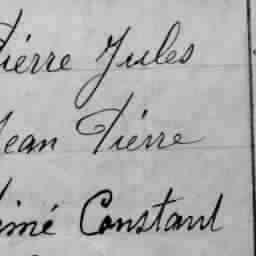 Pierre Jules
Jean Pierre
Aimé Constant